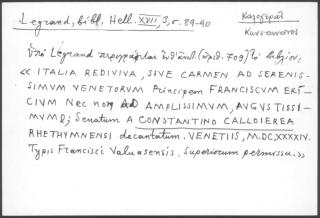 Legrand, bibl. Hell. XVII, 3, σ. 89-90
Καλογεράς
Κωνσταντῖνος
Ὑπὸ Legrand περιγράφεται ἐνθ' ἀνωτ. (ἀριθ. 709) τὸ βιβλίον:
« ITALIA REDIVIVA, SIVE CARMEN AD SERENIS-
SIMVM VENETORVM Principem FRANCISCVM ERI-
CIVM Nec non AD AMPLISSIMVM, AVGVSTISSI-
MVMQ; Senatum A CONSTANTINO CALLOIEREA
RHETHYMNENSI decantatum. VENETIIS, M.DC,XXXIV.
Typis Francisci Valuasensis. Superiorum permissu. »